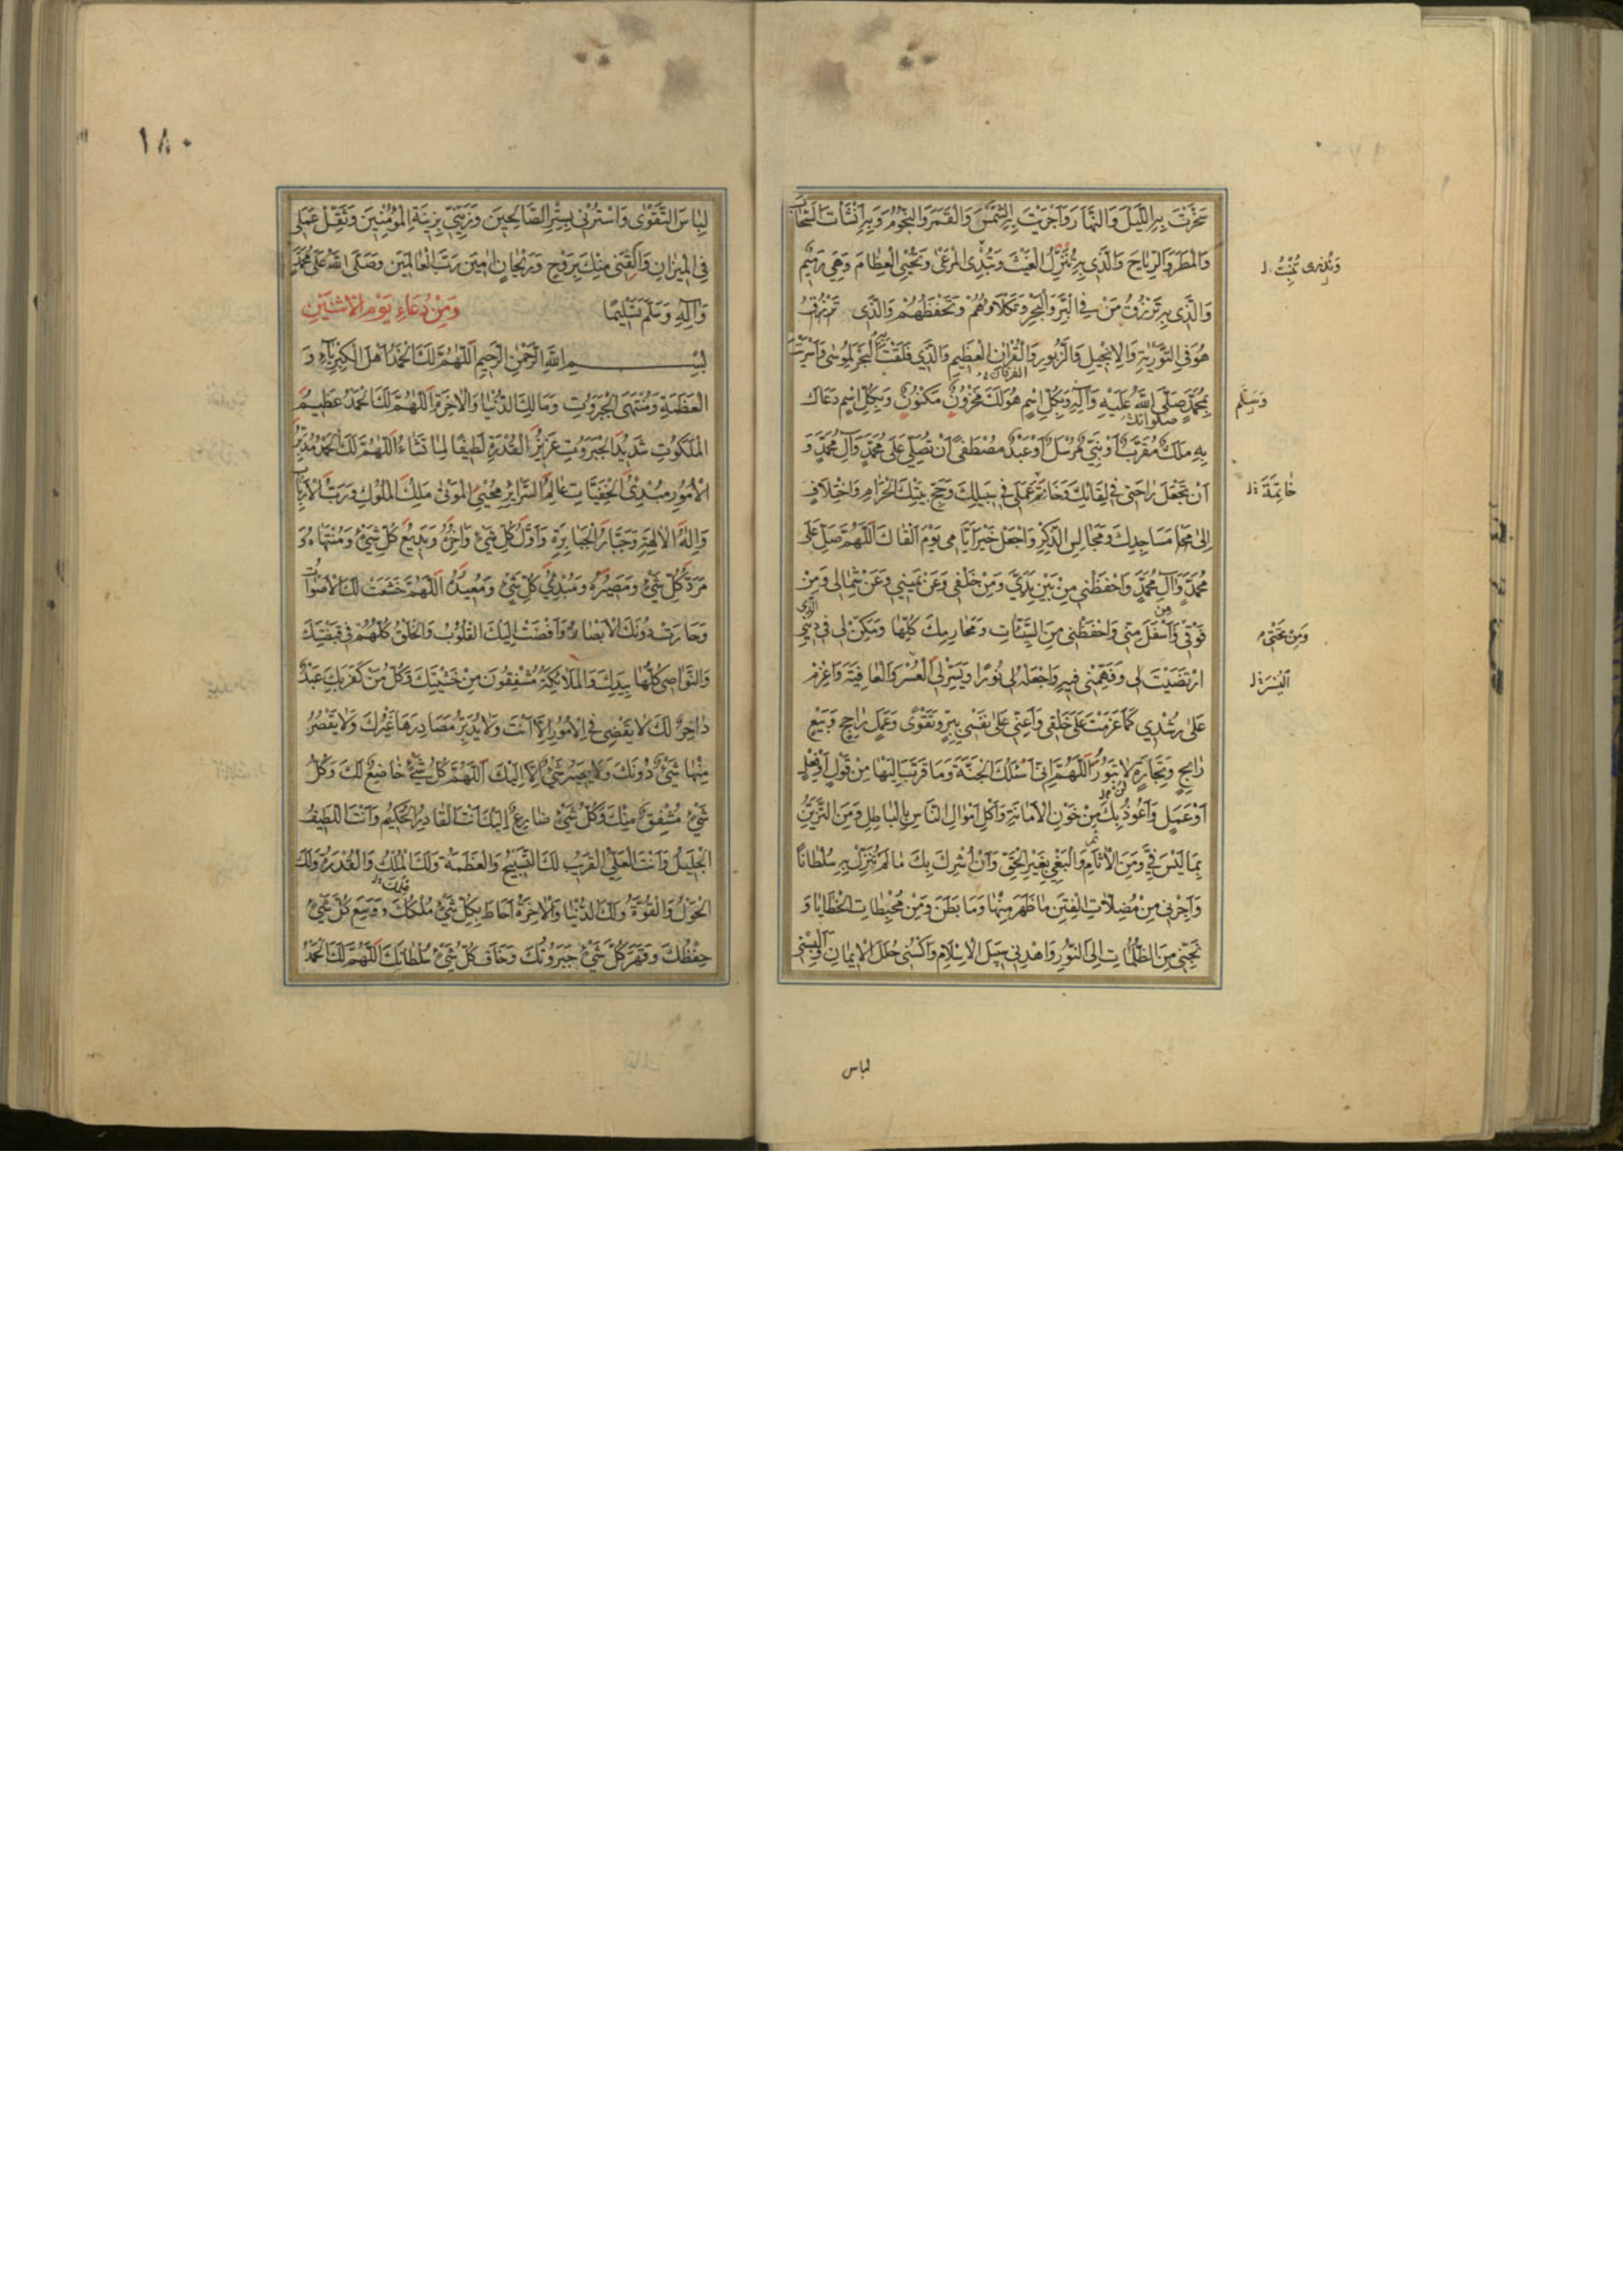 سَخَّرْتَ بِهِ اللَّيْلَ وَالنَّهَارَ وَاَجْرَيْتَ بِهِ الشَّمْسَ وَالْقَمَرَ وَالنُّجُومَ وَبِهِ اَنْشَأْتَ السَّحَابَ
وَالْمَطَرَ وَالرِّيَاحَ وَالَّذِي بِهِ تُنَزِّلُ الْغَيْثَ وَتُبْدِئُ الْمَرْعَى وَتُحْيِي الْعِظَامَ وَهِيَ رَمِيمٌ
وَالَّذِي بِهِ تَرْزُقُ مَنْ فِي الْبَرِّ وَالْبَحْرِ وَتَكْلَاُوهُمْ وَتَحْفَظُهُمْ وَالَّذِي
هُوَ فِي التَّوْرٰيةِ وَالْاِنْجِيلِ وَالزَّبُورِ وَالْقُرْاٰنِ الْعَظِيمِ وَالَّذِي فَلَقْتَ بِهِ الْبَحْرَ لِمُوسٰى وَاَسْرَيْتَ
بِمُحَمَّدٍ صَلَّى اللّٰهُ عَلَيْهِ وَآلِهِ وَبِكُلِّ اسْمٍ هُوَ لَكَ مَخْزُونٌ مَكْنُونٌ وَبِكُلِّ اسْمٍ دَعَاكَ
بِهِ مَلَكٌ مُقَرَّبٌ اَوْ نَبِيٌّ مُرْسَلٌ اَوْ عَبْدٌ مُصْطَفًى اَنْ تُصَلِّيَ عَلٰى مُحَمَّدٍ وَآلِ مُحَمَّدٍ وَ
اَنْ تَجْعَلَ رَاحَتِي فِي لِقَائِكَ وَخَاتَمَ عَمَلِي فِي سَبِيلِكَ وَحَجِّ بَيْتِكَ الْحَرَامِ وَاخْتِلَافٍ
اِلٰى مَسَاجِدِكَ وَمَجَالِسِ الذِّكْرِ وَاجْعَلْ خَيْرَ اَيَّامِي يَوْمَ اَلْقَاكَ اَللّٰهُمَّ صَلِّ عَلٰى
مُحَمَّدٍ وَآلِ مُحَمَّدٍ وَاحْفَظْنِي مِنْ بَيْنِ يَدَيَّ وَمِنْ خَلْفِي وَعَنْ يَمِينِي وَعَنْ شِمَالِي وَمِنْ
فَوْقِي وَاَسْفَلَ مِنِّي وَاحْفَظْنِي مِنَ السَّيِّئَاتِ وَمَحَارِمِكَ كُلِّهَا وَمَكِّنْ لِي فِي دِينِي الَّذِي
ارْتَضَيْتَ لِي وَفَهِّمْنِي فِيهِ وَاجْعَلْهُ لِي نُورًا وَيَسِّرْ لِي الْعُسْرَ وَالْعَافِيَةَ وَاعْزِمْ
عَلٰى رُشْدِي كَمَا عَزَمْتَ عَلٰى خَلْقِي وَاَعِنِّي عَلٰى نَفْسِي بِبِرٍّ وَتَقْوًى وَعَمَلٍ رَاجِحٍ وَبَيْعٍ
رَابِحٍ وَتِجَارَةٍ لَا تَبُورُ اَللّٰهُمَّ اِنِّي اَسْئَلُكَ الْجَنَّةَ وَمَا قَرَّبَ اِلَيْهَا مِنْ قَوْلٍ
اَوْ عَمَلٍ وَاَعُوذُ بِكَ مِنْ خَوْنِ الْاَمَانَةِ وَاَكْلِ اَمْوَالِ النَّاسِ بِالْبَاطِلِ وَمِنَ التَّزَيُّنِ
بِمَا لَيْسَ فِيَّ وَمِنَ الْآثَامِ وَالْبَغْيِ بِغَيْرِ الْحَقِّ وَاَنْ اُشْرِكَ بِكَ مَا لَمْ تُنَزِّلْ بِهِ سُلْطَانًا
وَاَجِرْنِي مِنْ مُضِلَّاتِ الْفِتَنِ مَا ظَهَرَ مِنْهَا وَمَا بَطَنَ وَمِنْ مُحْبِطَاتِ الْخَطَايَا وَ
نَجِّنِي مِنَ الظُّلُمَاتِ اِلَى النُّورِ وَاهْدِنِي سَبِيلَ الْاِسْلَامِ وَاكْسُنِي حُلَلَ الْاِيمَانِ وَاَلْبِسْنِي
وَسَلَّمَ
خَاتِمَةَ
وَمِنْ تَحْتِي
الْيُسْرَ
لباس
١٨٠
لِبَاسَ التَّقْوٰى وَاسْتُرْنِي بِسِتْرِ الصَّالِحِينَ وَزَيِّنِّي بِزِينَةِ الْمُؤْمِنِينَ وَثَقِّلْ عَمَلِي
فِي الْمِيزَانِ وَالْقِنِي مِنْكَ بِرَوْحٍ وَرَيْحَانٍ اٰمِينَ رَبَّ الْعَالَمِينَ وَصَلَّى اللّٰهُ عَلٰى مُحَمَّدٍ
وَآلِهِ وَسَلَّمَ تَسْلِيمًا وَمِنْ دُعَاءِ يَوْمِ الْاِثْنَيْنِ
بِسْمِ اللّٰهِ الرَّحْمٰنِ الرَّحِيمِ اَللّٰهُمَّ لَكَ الْحَمْدُ اَهْلَ الْكِبْرِيَاءِ وَ
الْعَظَمَةِ وَمُنْتَهَى الْجَبَرُوتِ وَمَالِكَ الدُّنْيَا وَالْاٰخِرَةِ اَللّٰهُمَّ لَكَ الْحَمْدُ عَظِيمَ
الْمَلَكُوتِ شَدِيدَ الْجَبَرُوتِ عَزِيزَ الْقُدْرَةِ لَطِيفًا لِمَا تَشَاءُ اَللّٰهُمَّ لَكَ الْحَمْدُ مُدَبِّرَ
الْاُمُورِ مُبْدِئَ الْخَفِيَّاتِ عَالِمَ السَّرَائِرِ مُحْيِيَ الْمَوْتٰى مَلِكَ الْمُلُوكِ وَرَبَّ الْاَرْبَابِ
وَاِلٰهَ الْاٰلِهَةِ وَجَبَّارَ الْجَبَابِرَةِ وَاَوَّلَ كُلِّ شَيْءٍ وَاٰخِرَهُ وَبَدِيعَ كُلِّ شَيْءٍ وَمُنْتَهَاهُ وَ
مَرَدَّ كُلِّ شَيْءٍ وَمَصِيرَهُ وَمُبْدِئَ كُلِّ شَيْءٍ وَمُعِيدَهُ اَللّٰهُمَّ خَشَعَتْ لَكَ الْاَصْوَاتُ
وَحَارَتْ دُونَكَ الْاَبْصَارُ وَاَفْضَتْ اِلَيْكَ الْقُلُوبُ وَالْخَلْقُ كُلُّهُمْ فِي قَبْضَتِكَ
وَالنَّوَاصِي كُلُّهَا بِيَدِكَ وَالْمَلَائِكَةُ مُشْفِقُونَ مِنْ خَشْيَتِكَ وَكُلُّ مَنْ كَفَرَ بِكَ عَبْدٌ
دَاخِرٌ لَكَ لَا يَقْضِي فِي الْاُمُورِ اِلَّا اَنْتَ وَلَا يُدَبِّرُ مَصَادِرَهَا غَيْرُكَ وَلَا يَقْصُرُ
مِنْهَا شَيْءٌ دُونَكَ وَلَا يَصِيرُ شَيْءٌ اِلَّا اِلَيْكَ اَللّٰهُمَّ كُلُّ شَيْءٍ خَاضِعٌ لَكَ وَكُلُّ
شَيْءٍ مُشْفِقٌ مِنْكَ وَكُلُّ شَيْءٍ ضَارِعٌ اِلَيْكَ اَنْتَ الْقَادِرُ الْحَكِيمُ وَاَنْتَ اللَّطِيفُ
الْجَلِيلُ وَاَنْتَ الْعَلِيُّ الْقَرِيبُ لَكَ التَّسْبِيحُ وَالْعَظَمَةُ وَلَكَ الْمُلْكُ وَالْقُدْرَةُ وَلَكَ
الْحَوْلُ وَالْقُوَّةُ وَلَكَ الدُّنْيَا وَالْاٰخِرَةُ اَحَاطَ بِكُلِّ شَيْءٍ مُلْكُكَ وَوَسِعَ كُلَّ شَيْءٍ
حِفْظُكَ وَقَهَرَ كُلَّ شَيْءٍ جَبَرُوتُكَ وَخَافَ كُلُّ شَيْءٍ سُلْطَانَكَ اَللّٰهُمَّ لَكَ الْحَمْدُ